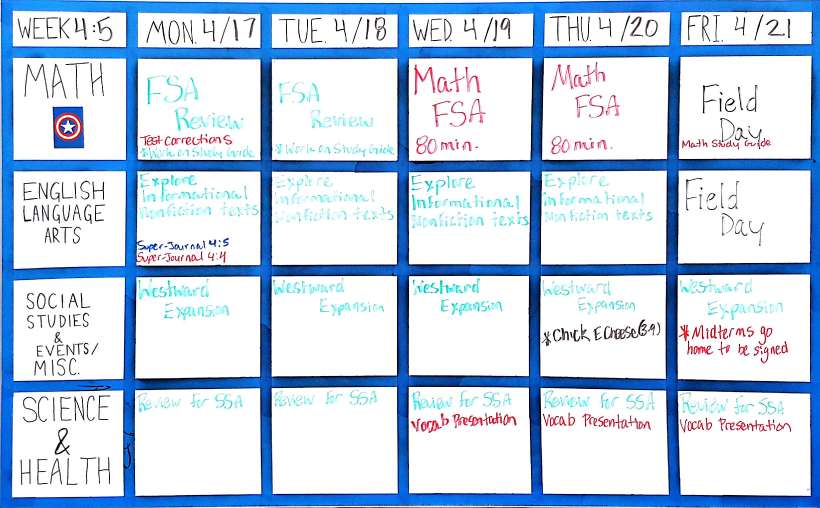 WEEK 4:5
MON. 4/17
TUE. 4/18
WED. 4/19
THU. 4/20
FRI. 4/21
MATH
FSA
Review
Test corrections
*Work on Study Guide
FSA
Review
*Work on Study Guide
Math
FSA
80 min.
Math
FSA
80 min.
Field
Day
Math Study Guide
ENGLISH
LANGUAGE
ARTS
Explore
Informational
Nonfiction texts
Super-Journal 4:5
Super-Journal 4:4
Explore
Informational
Nonfiction texts
Explore
Informational
Nonfiction texts
Explore
Informational
Nonfiction texts
Field
Day
SOCIAL
STUDIES
&
EVENTS/
MISC.
Westward
Expansion
Westward
Expansion
Westward
Expansion
Westward
Expansion
*Chuck E Cheese (3-9)
Westward
Expansion
*Midterms go
home to be signed
SCIENCE
&
HEALTH
Review for SSA
Review for SSA
Review for SSA
Vocab Presentation
Review for SSA
Vocab Presentation
Review for SSA
Vocab Presentation